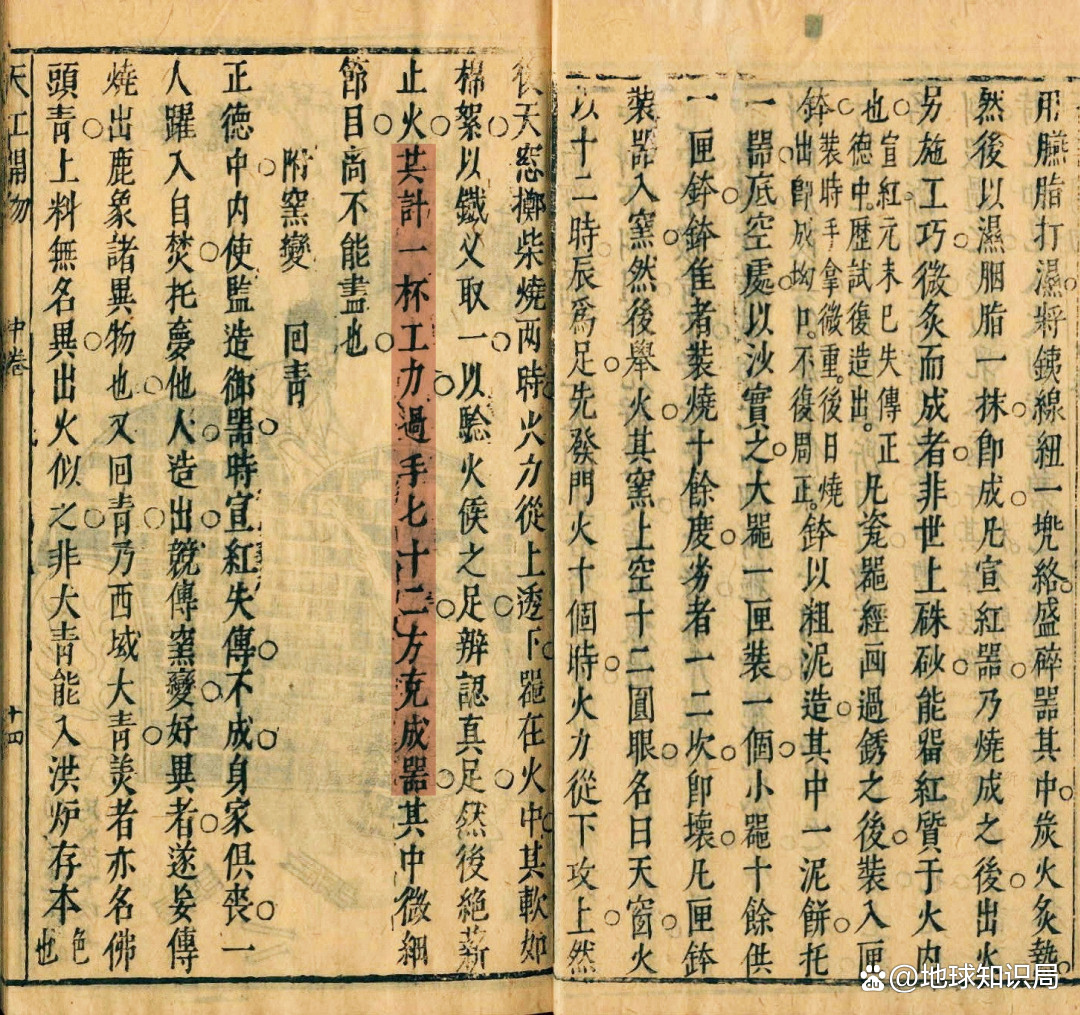 用臙脂打濕將銕線紐一兜絡盛碎器其中炭火炙熱
然後以濕胭脂一抹即成凡宣紅器乃燒成之後出火
另施工巧微炙而成者非世上硃砂能畱紅質于火內
也宣紅元末已失傳正德中歷試復造出凡瓷器經画過銹之後裝入匣
鉢裝時手拿微重後日燒出即成坳口不復周正鉢以粗泥造其中一泥餅托
一器底空處以沙實之大器一匣裝一個小器十餘供
一匣鉢鉢隹者裝燒十餘度劣者一二次即壞凡匣鉢
裝器入窯然後舉火其窯上空十二圓眼名曰天窗火
以十二時辰爲足先發門火十個時火力從下攻上然
後天窓擲柴燒两時火力從上透下器在火中其軟如
棉絮以鐵义取一以驗火候之足辨認真足然後絶薪
止火共計一杯工力過手七十二方克成器其中微細
節目尚不能盡也
附窯變 回青
正德中內使監造御器時宣紅失傳不成身家俱喪一
人躍入自焚托夢他人造出競傳窯變好異者遂妄傳
燒出鹿象諸異物也又回青乃西域大青美者亦名佛
頭青上料無名異出火似之非大青能入洪炉存本色也
天工開物 中卷 十四
@地球知识局